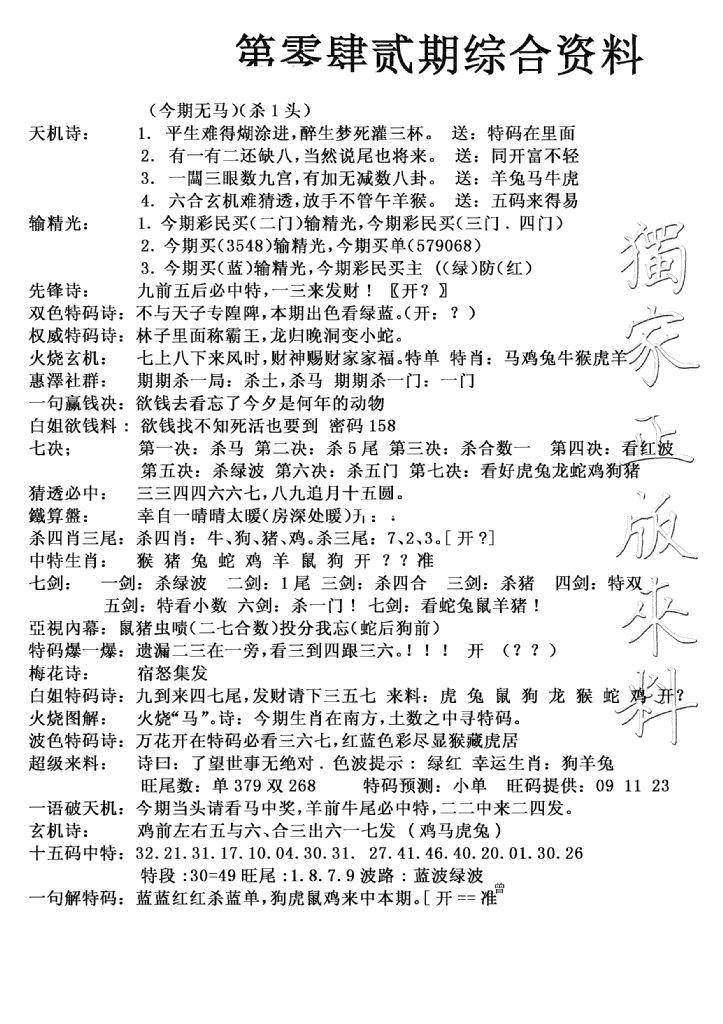 第零肆贰期综合资料
(今期无马)(杀1头)
天机诗: 1. 平生难得煳涂进,醉生梦死灌三杯。 送: 特码在里面
2. 有一有二还缺八,当然说尾也将来。 送: 同开富不轻
3. 一闆三眼数九宫,有加无减数八卦。 送: 羊兔马牛虎
4. 六合玄机难猜透,放手不管午羊猴。 送: 五码来得易
输精光: 1. 今期彩民买(二门)输精光,今期彩民买(三门.四门)
2. 今期买(3548)输精光,今期买单(579068)
3. 今期买(蓝)输精光,今期彩民买主 ((绿)防(红)
先锋诗: 九前五后必中特,一三来发财! 〖开?〗
双色特码诗: 不与天子专隍陴,本期出色看绿蓝。(开: ?)
权威特码诗: 林子里面称霸王,龙归晚洞变小蛇。
火烧玄机: 七上八下来风时,财神赐财家家福。特单 特肖: 马鸡兔牛猴虎羊
惠澤社群: 期期杀一局: 杀土,杀马 期期杀一门: 一门
一句赢钱决: 欲钱去看忘了今夕是何年的动物
白姐欲钱料: 欲钱找不知死活也要到 密码158
七决; 第一决: 杀马 第二决: 杀5尾 第三决: 杀合数一 第四决: 看红波
第五决: 杀绿波 第六决: 杀五门 第七决: 看好虎兔龙蛇鸡狗猪
猜透必中: 三三四四六六七,八九追月十五圆。
鐵算盤: 幸自一晴晴太暖(房深处暖)
杀四肖三尾: 杀四肖: 牛、狗、猪、鸡。杀三尾: 7、2、3。[开?]
中特生肖: 猴 猪 兔 蛇 鸡 羊 鼠 狗 开 ??准
七剑: 一剑: 杀绿波 二剑: 1尾 三剑: 杀四合 三剑: 杀猪 四剑: 特双
五剑: 特看小数 六剑: 杀一门! 七剑: 看蛇兔鼠羊猪!
亞視內幕: 鼠猪虫啧(二七合数)投分我忘(蛇后狗前)
特码爆一爆: 遗漏二三在一旁,看三到四跟三六。!!! 开 (??)
梅花诗: 宿怒集发
白姐特码诗: 九到来四七尾,发财请下三五七 来料: 虎 兔 鼠 狗 龙 猴 蛇 鸡 开?
火烧图解: 火烧“马”。诗: 今期生肖在南方,土数之中寻特码。
波色特码诗: 万花开在特码必看三六七,红蓝色彩尽显猴藏虎居
超级来料: 诗曰: 了望世事无绝对. 色波提示: 绿红 幸运生肖: 狗羊兔
旺尾数: 单379双268 特码预测: 小单 旺码提供: 09 11 23
一语破天机: 今期当头请看马中奖,羊前牛尾必中特,二二中来二四发。
玄机诗: 鸡前左右五与六、合三出六一七发 (鸡马虎兔)
十五码中特: 32.21.31.17.10.04.30.31. 27.41.46.40.20.01.30.26
特段:30=49旺尾:1.8.7.9波路: 蓝波绿波
一句解特码: 蓝蓝红红杀蓝单,狗虎鼠鸡来中本期。[开==准
曾
獨家正版來料